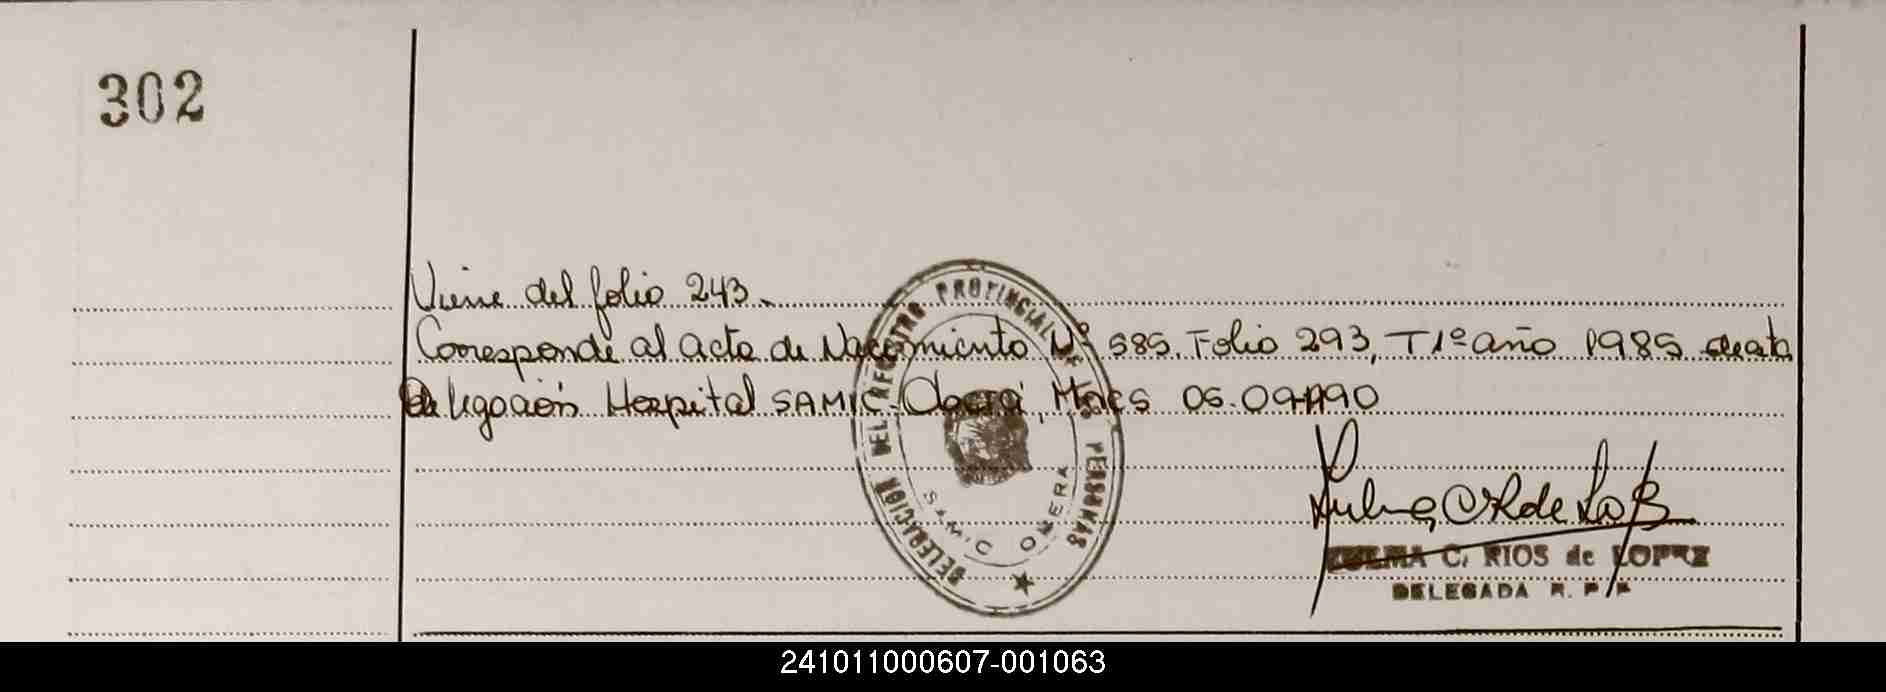 302
Viene del folio 243.
Corresponde al acta de Nacimiento Nº 585, Folio 293, T1º año 1985 de esta
Delegación Hospital SAMIC. Oberá, Mnes 05.09.1990
DELEGACION DEL REGISTRO PROVINCIAL DE LAS PERSONAS
SAMIC OBERA
ZULMA C. RIOS de LOPEZ
DELEGADA R. P. P.
241011000607-001063